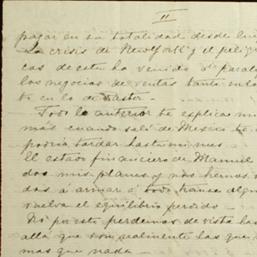 11
pagar en su totalidad desde lue
La crisis de New York y el peligr
cas de esta ha venido a paraly
los negocios de ventas tanto en la
to en lo de
Todo lo anterior te explica mi
más cuando salí de Mexico
podría tardar hasta un mes.
El estado financiero de Manuel
dos mis planes y nos hemos
dos a arriar a todo trance algu
vuelva el equilibrio perdido.
No por esto perdemos de vista las
allá que son realmente las que
mas que nada